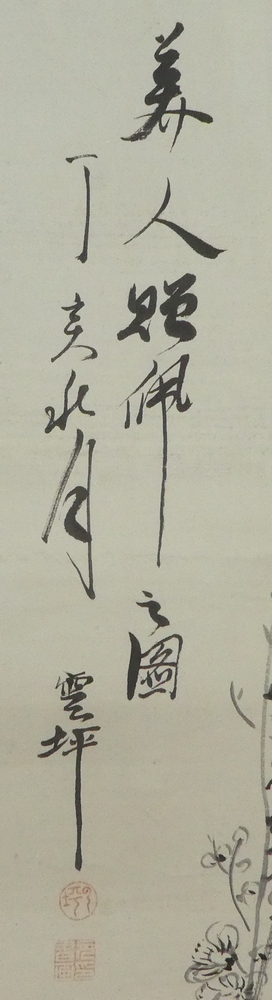 美人贈佩之圖
丁亥秋月
雲坪